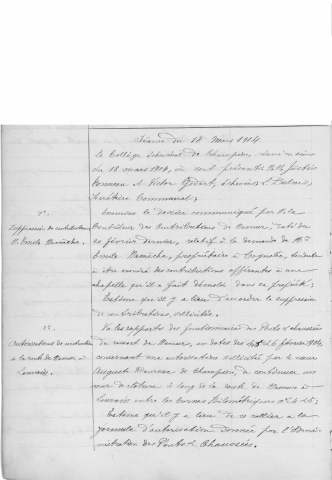 Séance du 18 Mars 1914.
Le Collège échevinal de Champion, dans sa séance
du 18 mars 1914, où sont présents M.M. Justin
et Victor Godart, échevins,
Secrétaire Communal;
1°.
Suppression de contributions
M. Emile Namèche.
Examine le dossier communiqué par M. le
Contrôleur des Contributions de Namur, daté du
février dernier, relatif à la demande de Mr
Emile Namèche, propriétaire à Cognelée, tendante
à être exonéré des contributions afférentes à une
chapelle qu'il a fait démolir dans sa propriété;
Estime qu'il y a lieu d'accorder la suppression
de contributions, sollicitée.
2°.
Autorisations de construction
à la route de Namur à
Louvain.
Vu les rapports des fonctionnaires des Ponts et chaussées
du ressort de Namur, en dates des 4 et 6 février 1914,
concernant une autorisation sollicitée par le sieur
Auguste de Champion, de construire un
mur de clôture le long de la route de Namur à
Louvain entre les bornes kilométriques n° 4 & 5;
Estime qu'il y a lieu de se rallier à la
formule d'autorisation donnée par l'Admi-
nistration des Ponts & Chaussées.